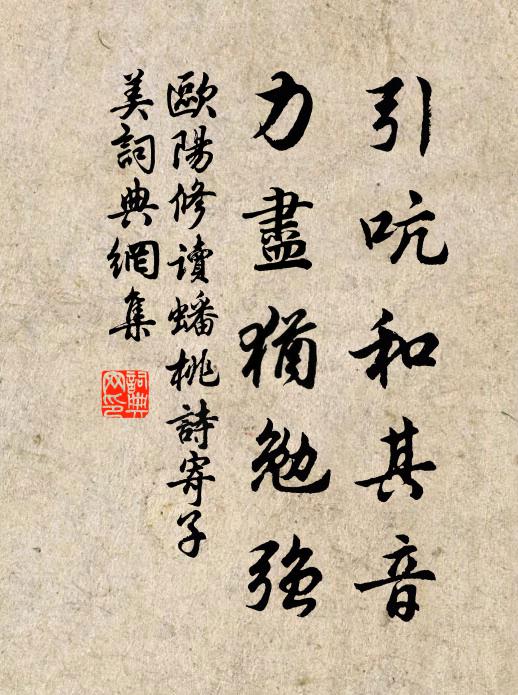 引吭和其音
力盡猶勉強
歐陽修讀蟠桃詩寄子
美詞典網集
詞典
网印